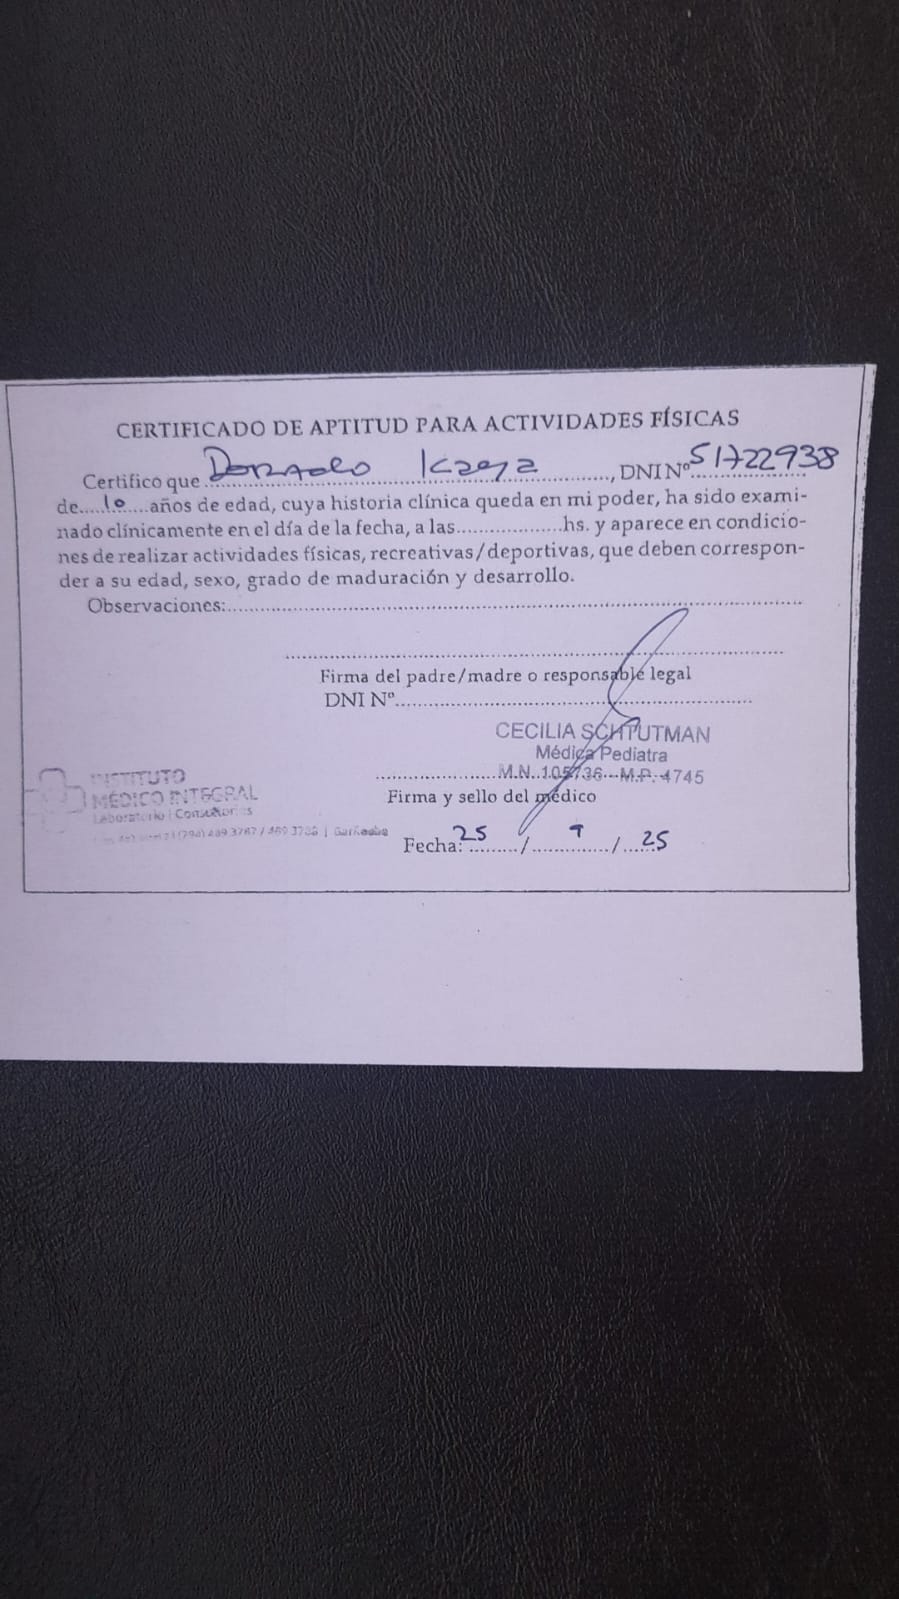 CERTIFICADO DE APTITUD PARA ACTIVIDADES FÍSICAS
Certifico que Dorado Kaya, DNI Nº 51722938
de.....10.....años de edad, cuya historia clínica queda en mi poder, ha sido exami-
nado clínicamente en el día de la fecha, a las....................hs. y aparece en condicio-
nes de realizar actividades físicas, recreativas/deportivas, que deben correspon-
der a su edad, sexo, grado de maduración y desarrollo.
Observaciones:
Firma del padre/madre o responsable legal
DNI Nº
CECILIA SCHTUTMAN
Médica Pediatra
M.N. 105736 - M.P. 4745
Firma y sello del médico
INSTITUTO
MÉDICO INTEGRAL
Laboratorio | Consultorios
Fecha: 25 / 9 / 25